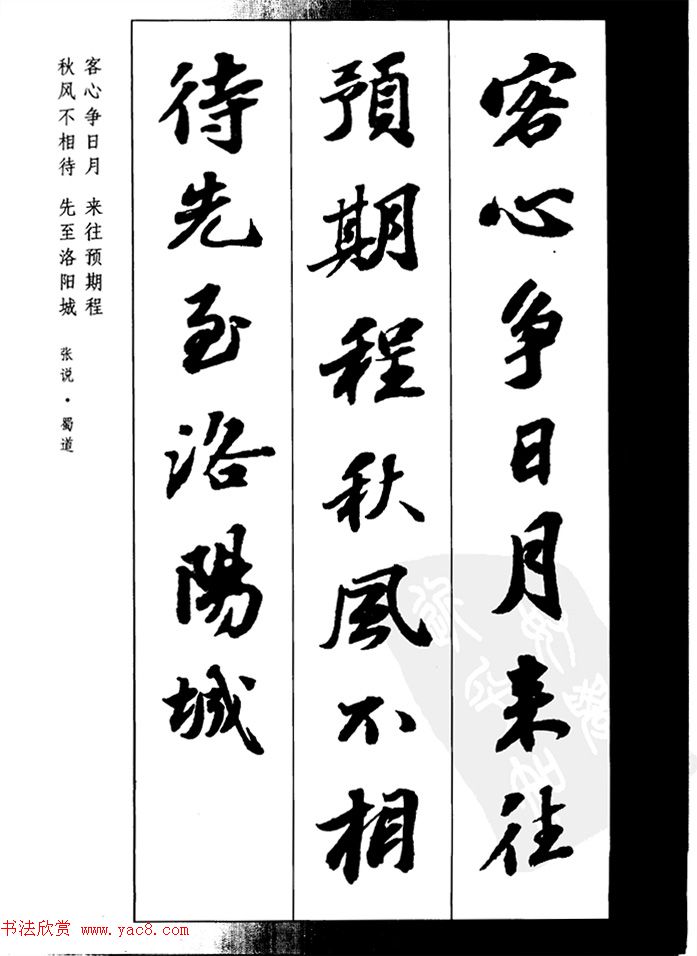 客心争日月来往
預期程秋風不相
待先至洛陽城
客心争日月 来往预期程
秋风不相待 先至洛阳城 张说·蜀道
书法欣赏 www.yac8.com